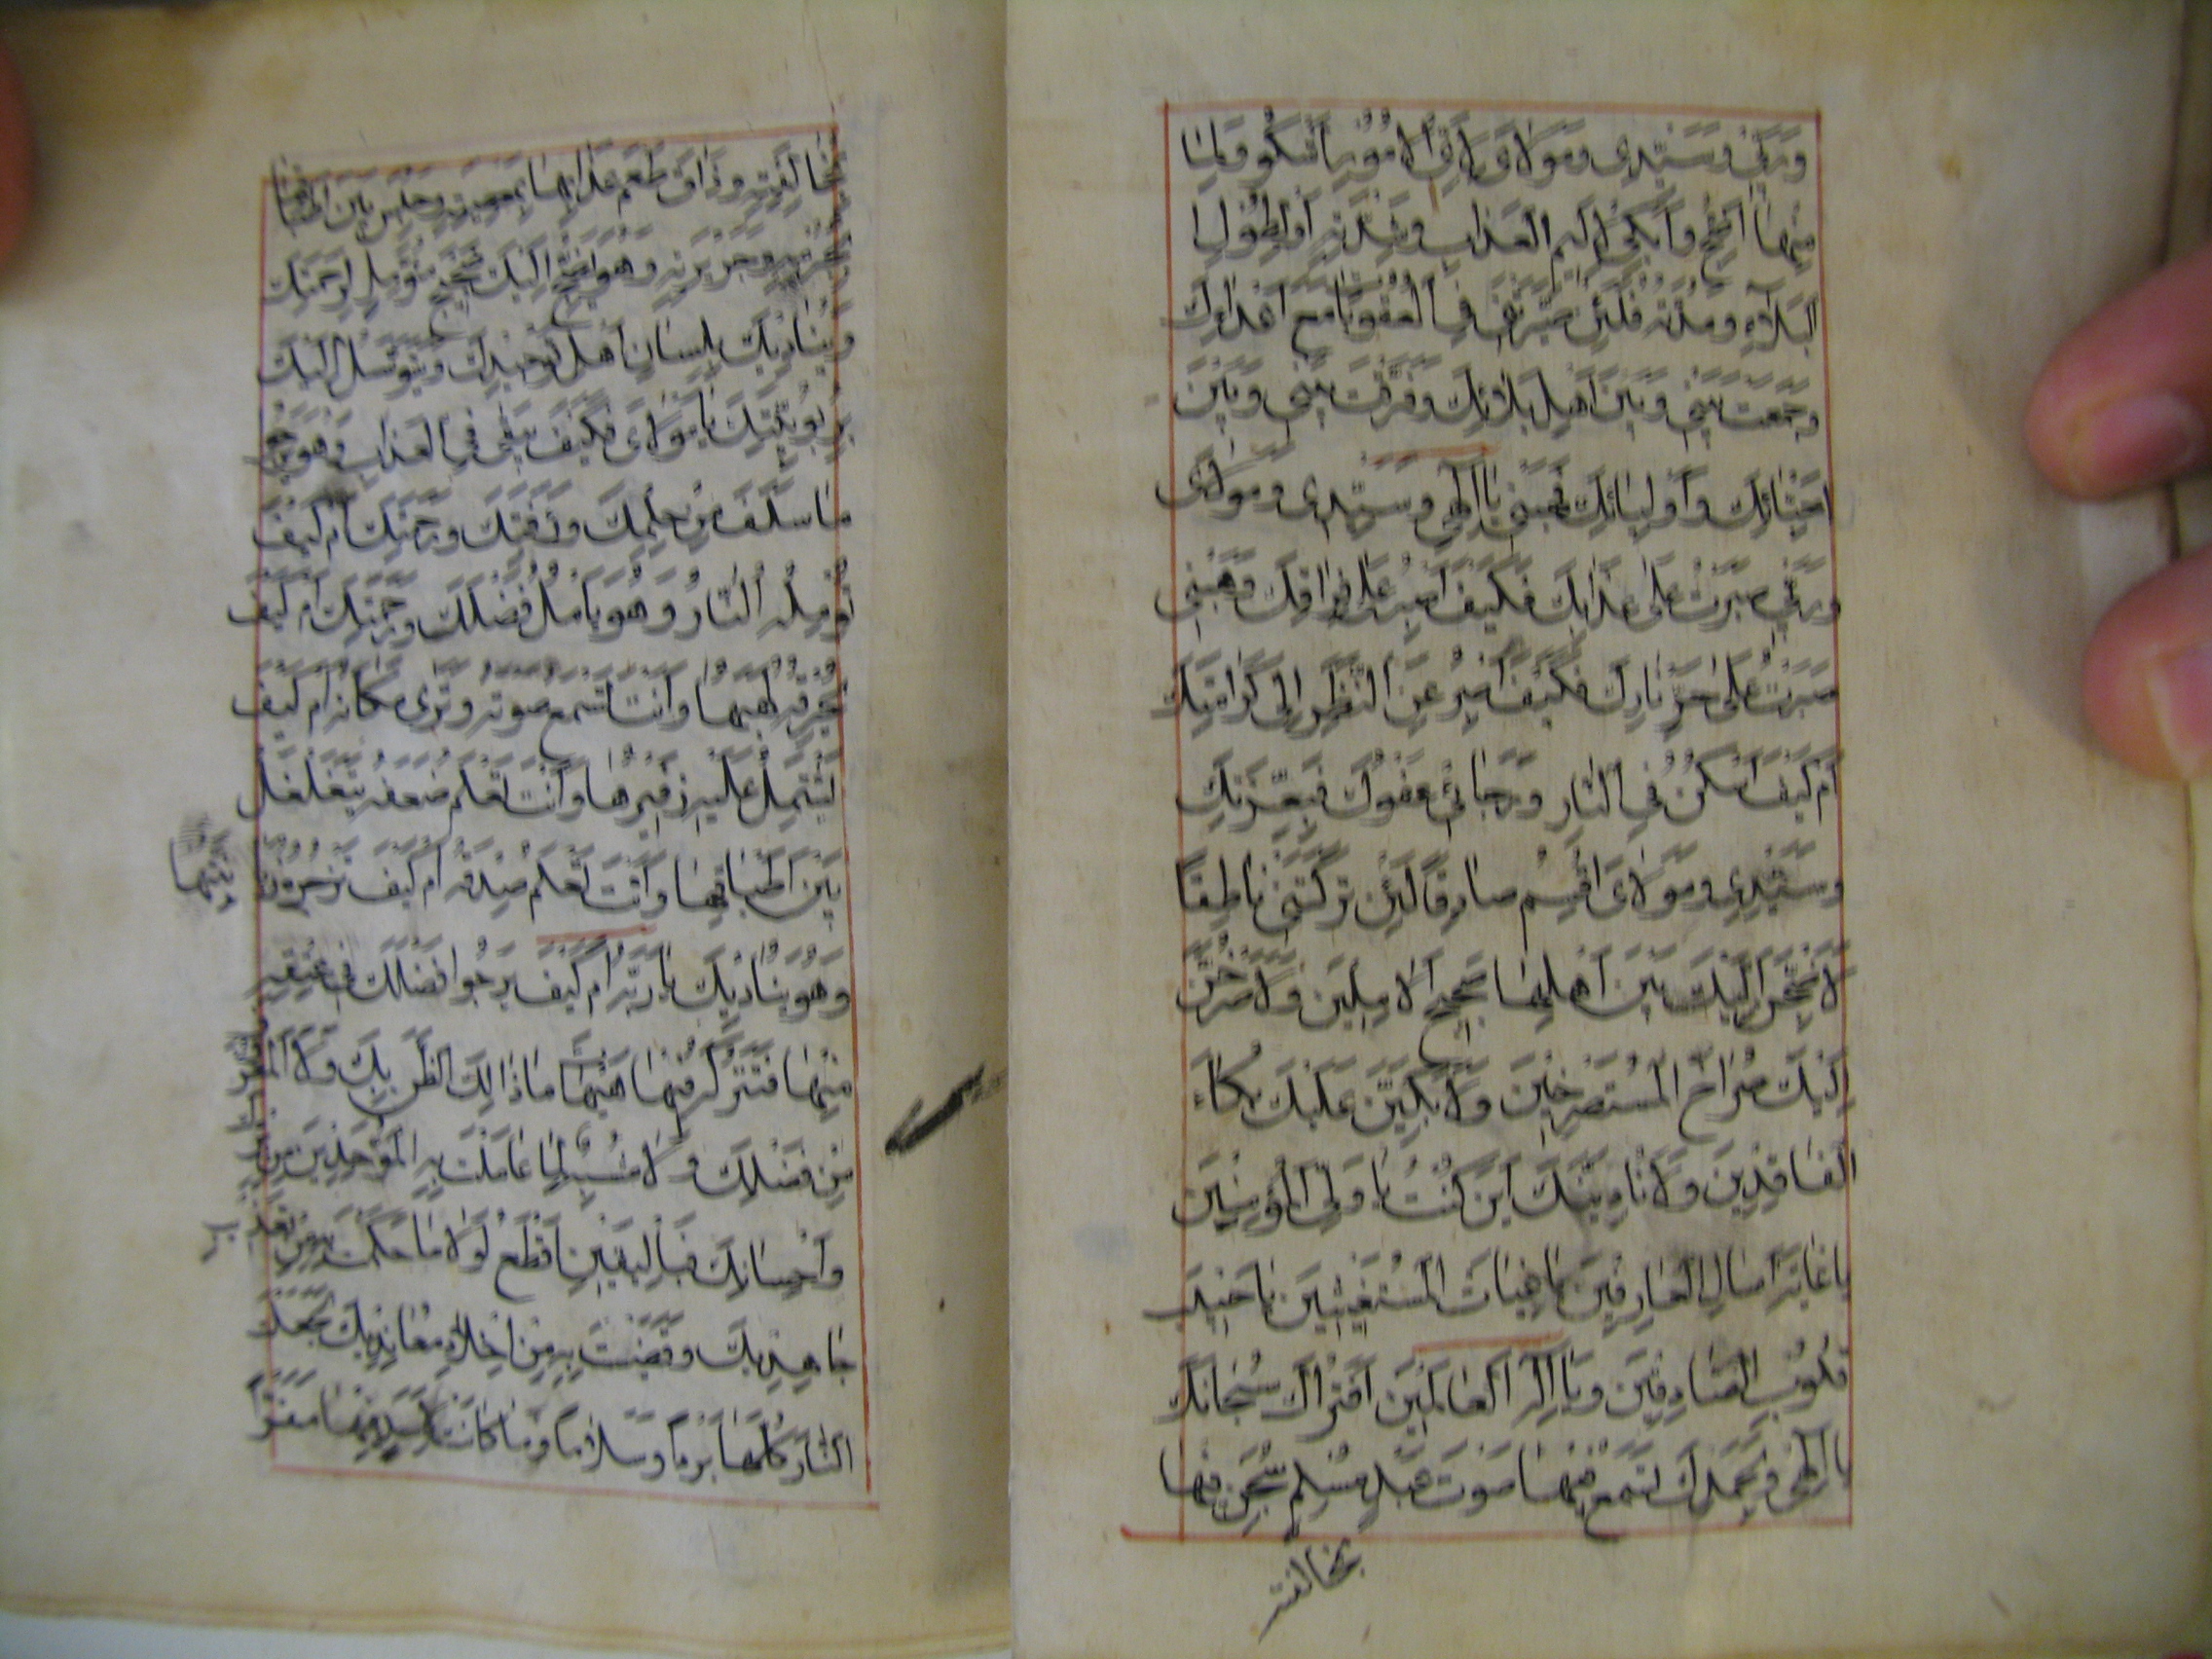 وَرَبّي وَسَيِّدِي وَمَوْلاٰىَ لِاَيِّ الْاُمُورِ اِلَيْكَ اَشْكُو وَلِمٰا
مِنْهٰا اَضِجُّ وَاَبْكِى لِاَلِيمِ الْعَذٰابِ وَشِدَّتِهِ اَوْ لِطُولِ
الْبَلآءِ وَمُدَّتِهِ فَلَئِنْ صَيَّرْتَنِي فِى الْعُقُوبٰاتِ مَعَ اَعْدٰائِكَ
وَجَمَعْتَ بَيْنِي وَبَيْنَ اَهْلِ بَلاٰئِكَ وَفَرَّقْتَ بَيْنِي وَبَيْنَ
اَحِبّٰائِكَ وَاَوْلِيٰائِكَ فَهَبْنِي يٰا اِلٰهِي وَسَيِّدِي وَمَوْلاٰىَ
وَرَبّي صَبَرْتُ عَلىٰ عَذٰابِكَ فَكَيْفَ اَصْبِرُ عَلىٰ فِرٰاقِكَ وَهَبْنِي
صَبَرْتُ عَلىٰ حَرِّ نٰارِكَ فَكَيْفَ اَصْبِرُ عَنِ النَّظَرِ اِلىٰ كَرٰامَتِكَ
اَمْ كَيْفَ اَسْكُنُ فِي النّٰارِ وَرَجٰائِي عَفْوُكَ فَبِعِزَّتِكَ
وَسَيِّدِي وَمَوْلاٰىَ اُقْسِمُ صٰادِقًا لَئِنْ تَرَكْتَنِي نٰاطِقًا
لَاَضِجَّنَّ اِلَيْكَ بَيْنَ اَهْلِهٰا ضَجِيجَ الْاٰمِلِينَ وَلَاَصْرُخَنَّ
اِلَيْكَ صُرٰاخَ الْمُسْتَصْرِخِينَ وَلَاَبْكِيَنَّ عَلَيْكَ بُكٰاءَ
الْفٰاقِدِينَ وَلَاُنٰادِيَنَّكَ اَيْنَ كُنْتَ يٰا وَلِىَّ الْمُؤْمِنِينَ
يٰا غٰايَةَ اٰمٰالِ الْعٰارِفِينَ يٰا غِيٰاثَ الْمُسْتَغِيثِينَ يٰا حَبِيبَ
قُلُوبِ الصّٰادِقِينَ وَيٰا اِلٰهَ الْعٰالَمِينَ اَفَتُرٰاكَ سُبْحٰانَكَ
يٰا اِلٰهِي وَبِحَمْدِكَ تَسْمَعُ فِيهٰا صَوْتَ عَبْدٍ مُسْلِمٍ سُجِنَ فِيهٰا
بمخالفته
بِمُخٰالَفَتِهِ وَذٰاقَ طَعْمَ عَذٰابِهٰا بِمَعْصِيَتِهِ وَحُبِسَ بَيْنَ اَطْبٰاقِهٰا
بِجُرْمِهِ وَجَرِيرَتِهِ وَهُوَ يَضِجُّ اِلَيْكَ ضَجِيجَ مُؤَمِّلٍ لِرَحْمَتِكَ
وَيُنٰادِيكَ بِلِسٰانِ اَهْلِ تَوْحِيدِكَ وَيَتَوَسَّلُ اِلَيْكَ
بِرُبُوبِيَّتِكَ يٰا مَوْلاٰىَ فَكَيْفَ يَبْقىٰ فِى الْعَذٰابِ وَهُوَ يَرْجُو
مٰا سَلَفَ مِنْ حِلْمِكَ وَرَأْفَتِكَ وَرَحْمَتِكَ اَمْ كَيْفَ
تُؤْلِمُهُ النّٰارُ وَهُوَ يَأْمُلُ فَضْلَكَ وَرَحْمَتَكَ اَمْ كَيْفَ
يُحْرِقُهُ لَهِيبُهٰا وَاَنْتَ تَسْمَعُ صَوْتَهُ وَتَرىٰ مَكٰانَهُ اَمْ كَيْفَ
يَشْتَمِلُ عَلَيْهِ زَفِيرُهٰا وَاَنْتَ تَعْلَمُ ضَعْفَهُ يَتَغَلْغَلُ
بَيْنَ اَطْبٰاقِهٰا وَاَنْتَ تَعْلَمُ صِدْقَهُ اَمْ كَيْفَ تَزْجُرُهُ زَبٰانِيَتُهٰا
وَهُوَ يُنٰادِيكَ يٰا رَبَّهُ اَمْ كَيْفَ يَرْجُوا فَضْلَكَ فِي عِتْقِهِ
مِنْهٰا فَتَتْرُكُهُ فِيهٰا هَيْهٰاتَ مٰا ذٰلِكَ الظَّنُّ بِكَ وَلَا الْمَعْرُوفُ
مِنْ فَضْلِكَ وَلاٰ مُشْبِهٌ لِمٰا عٰامَلْتَ بِهِ الْمُوَحِّدِينَ مِنْ بِرِّكَ
وَاِحْسٰانِكَ فَبِالْيَقِينِ اَقْطَعُ لَوْلاٰ مٰا حَكَمْتَ بِهِ مِنْ تَعْذِيبِ
جٰاحِدِيكَ وَقَضَيْتَ بِهِ مِنْ اِخْلاٰدِ مُعٰانِدِيكَ لَجَعَلْتَ
النّٰارَ كُلَّهٰا بَرْدًا وَسَلاٰمًا وَمٰا كٰانَتْ لِاَحَدٍ فِيهٰا مَقَرًّا